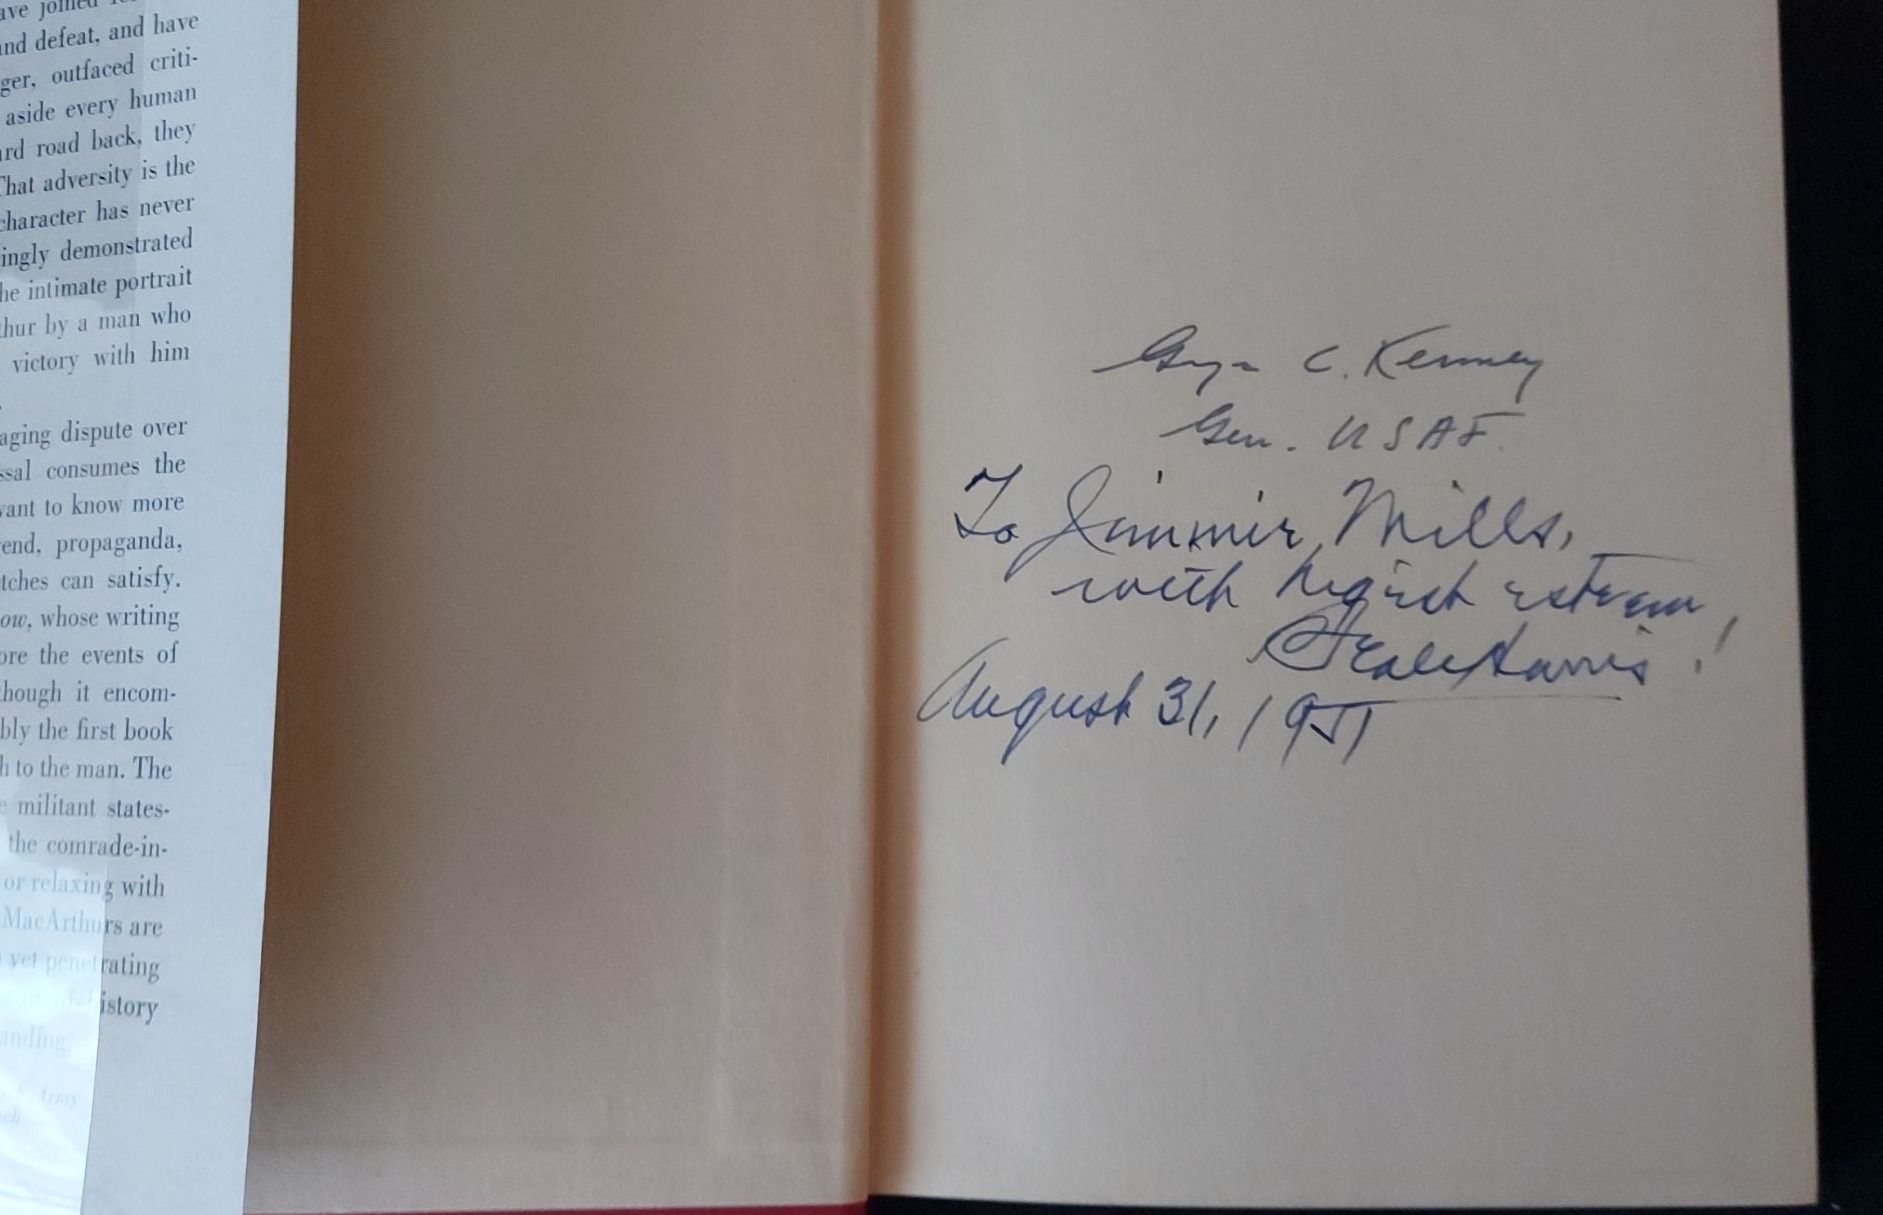 ave joined
and defeat, and have
ger, outfaced criti-
aside every human
ard road back, they
That adversity is the
character has never
ingly demonstrated
he intimate portrait
thur by a man who
victory with him
aging dispute over
ssal consumes the
want to know more
end, propaganda,
tches can satisfy.
ow, whose writing
ore the events of
though it encom-
bly the first book
h to the man. The
e militant states-
the comrade-in-
or relaxing with
MacArthurs are
yet penetrating
istory
anding.
Army
George C. Kenney
Gen. USAF.
To Jimmie Mills,
with highest esteem!
Seale Harris
August 31, 1951